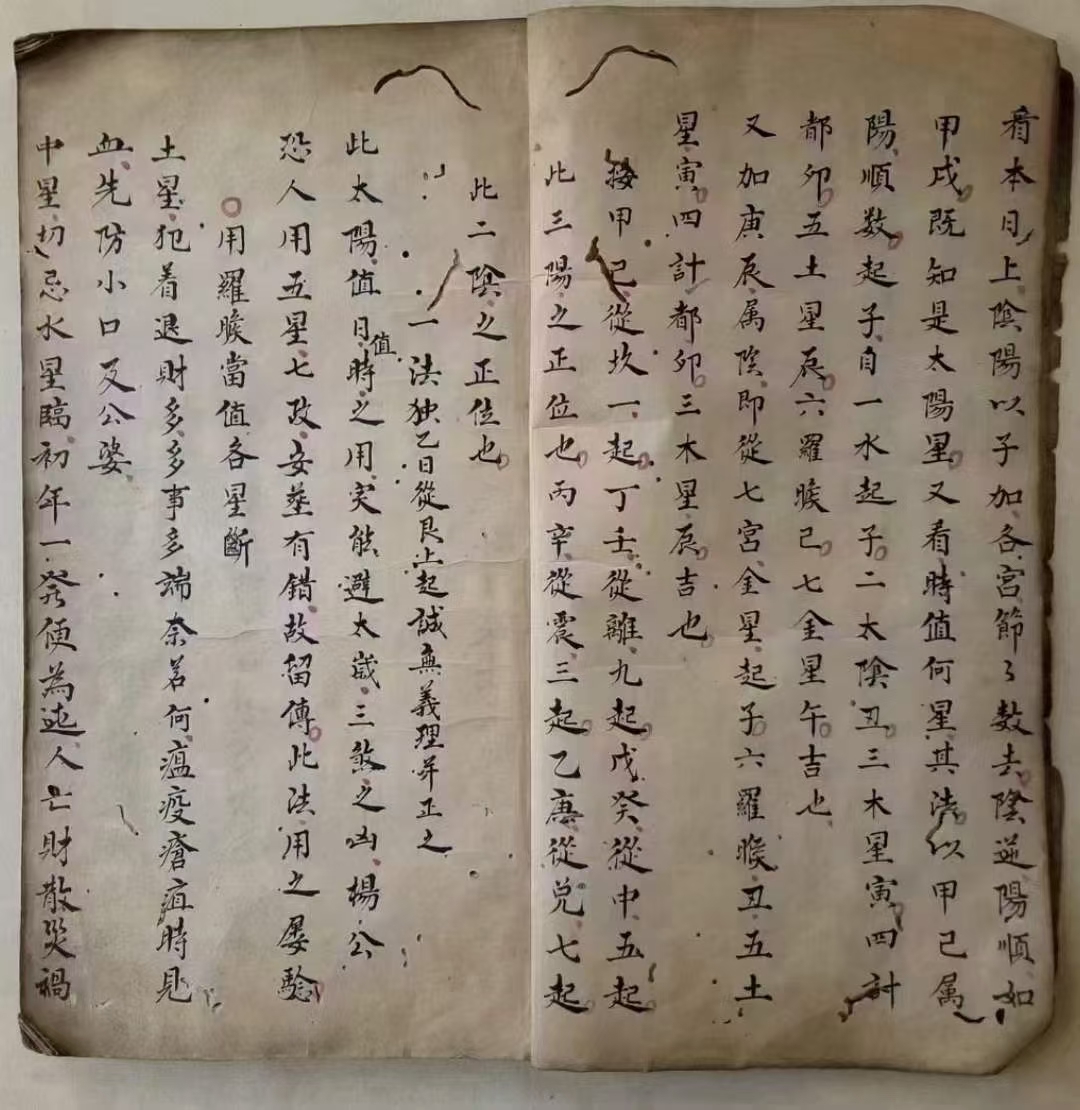 看本日上陰陽以子加各宮節々数去陰逆陽順如
甲戌既知是太陽星又看時值何星其法以甲己属
陽順数起子自一水起子二太陰丑三木星寅四計
都卯五土星辰六羅睺巳七金星午吉也
又加庚辰属陰即從七宮金星起子六羅睺丑五土
星寅四計都卯三木星辰吉也
按甲己從坎一起丁壬從離九起戊癸從中五起
此三陽之正位也丙辛從震三起乙庚從兌七起
此二陰之正位也
一法独乙日從艮上起誠無義理并正之
此太陽值日值時之用实能避太歲三煞之凶楊公
恐人用五星七政妄塟有錯故留傳此法用之屡驗
用羅睺當值各星斷
土星犯着退財多多事多端奈若何瘟疫瘡疽時見
血先防小口及公婆
中星切忌水星臨初年一発便為迍人亡財散災禍